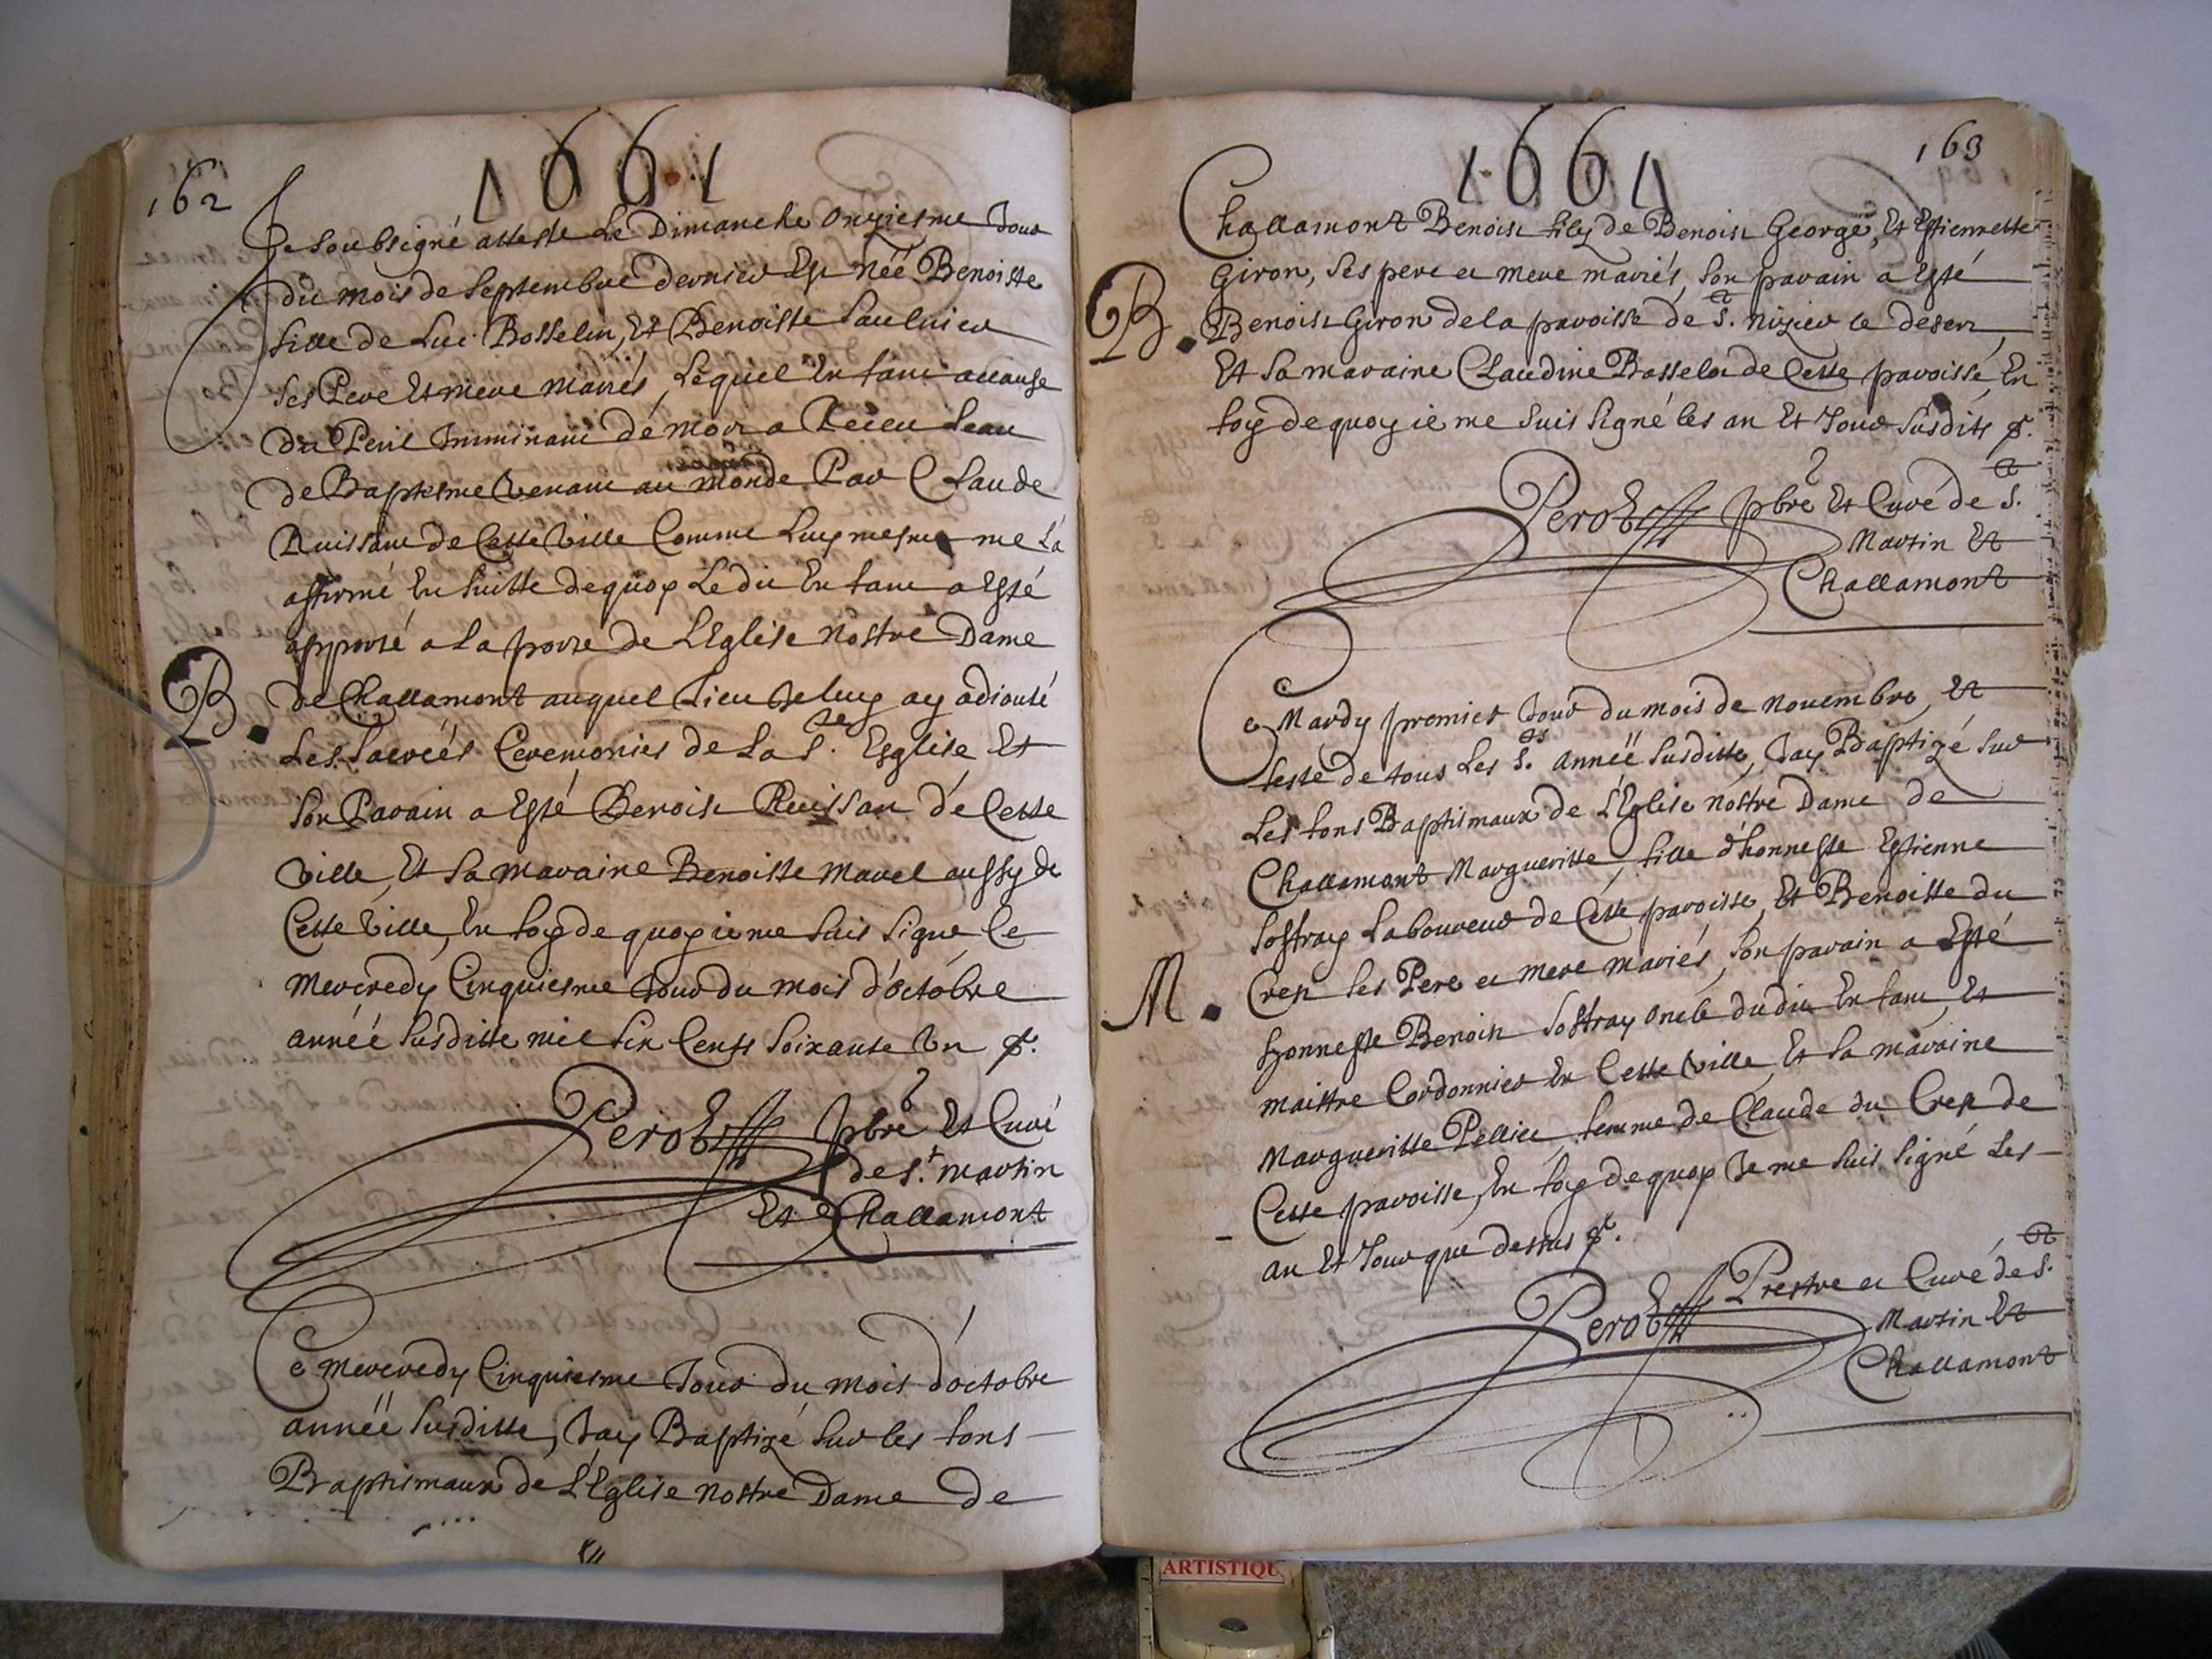 1661
162
Je soubsigné atteste Le Dimanche onziesme Jour
du mois de Septembre dernier Est néé Benoiste
fille de Luc Bosselin, Et Benoiste Saulnier
ses Pere Et mere mariés, Lequel Enfant acause
du Peril Imminant de mort a Receu Leau
de Baptesme Venant au monde Par Claude
Ruissant de Cette Ville Comme Luy mesme me La
affirmé En suitte dequoy Ledit Enfant a Esté
apporté a La porte de L'Eglise Nostre Dame
B. de Challamont auquel Lieu Je luy ay adiouté
Les Sacréés Ceremonies de La S.te Esglise Et
Son Parain a Esté Benoist Ruissan de Cette
Ville, Et Sa maraine Benoiste marel aussy de
Cette Ville, En foy de quoy ie me suis signé ce
mercredy Cinquiesme Jour du mois d'octobre
annéé susditte mil six Cents soixante Un
Perost pbre Et Curé
de S.t martin
Et Challamont
Ce mercredy Cinquiesme Jour du mois d'octobre
annéë susditte, Jay Baptizé sur les fons
Baptismaux de L'Eglise nostre Dame de
1661
163
Challamont Benoist fils de Benoist George, Et Estiennette
Giron, ses pere et mere mariés, son parain a Esté
B. Benoist Giron de la paroisse de S.t nizier le desert
Et Sa maraine Claudine Bassela de Cette paroisse, En
foy de quoy ie me suis signé les an Et Jour susdits
Perost pbre Et Curé de S.t
Martin Et
Challamont
Ce Mardy premier Jour du mois de novembre, Et
feste de tous Les S.ts annéë susditte, Jay Baptizé sur
Les fons Baptismaux de L'Eglise nostre Dame de
Challamont Margueritte, fille d'honneste Estienne
Sostray Laboureur de Cette paroisse, Et Benoiste du
M. Crep ses Pere et mere mariés, son parain a Esté
honneste Benoist Sostray oncle dudit Enfant, Et
maistre Cordonnier En Cette Ville, Et Sa maraine
Margueritte Pellice, femme de Claude du Crep de
Cette paroisse, En foy de quoy Je me suis signé Les
an Et Jour que dessus
Perost Prestre et Curé de S.t
Martin Et
Challamont
ARTISTIQU